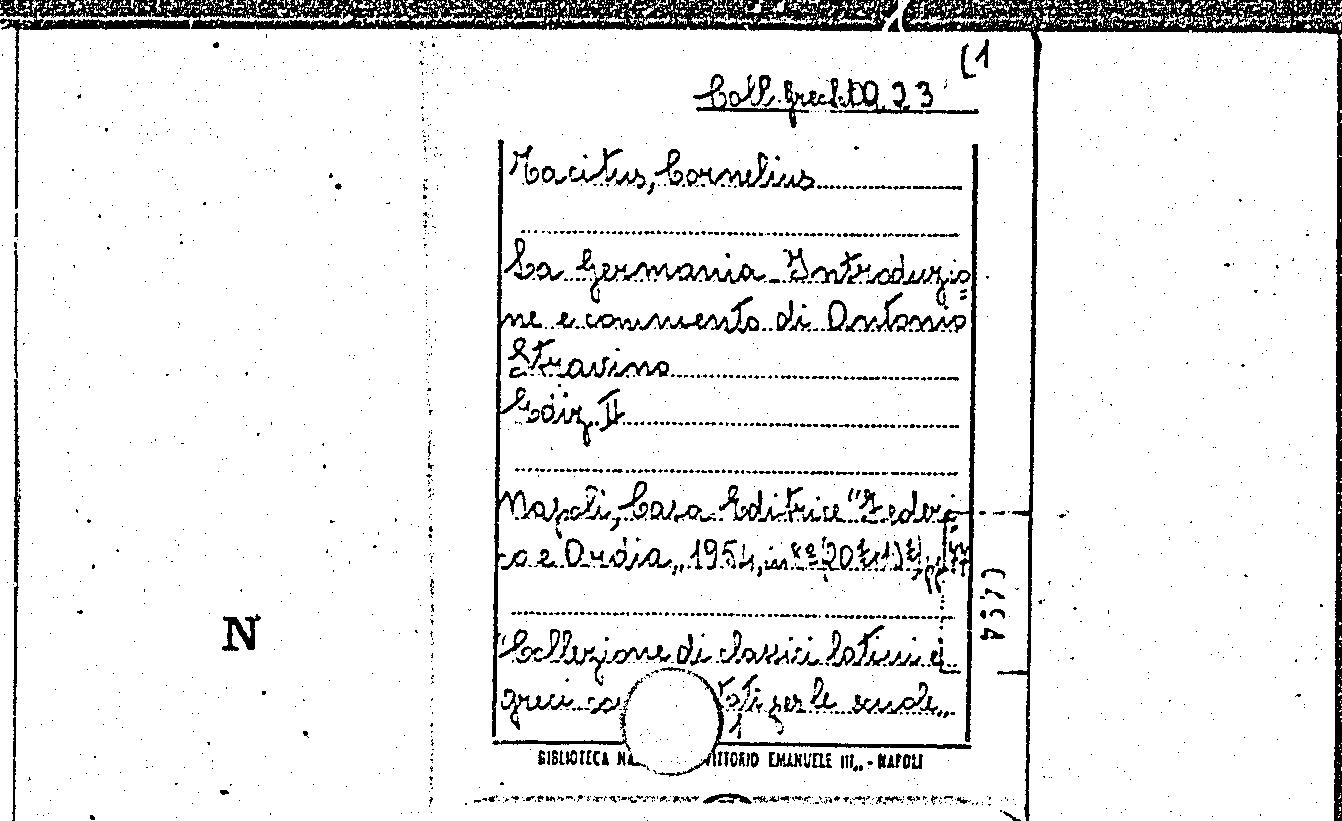 (1
Coll. 23
Tacitus, Cornelius
La Germania - Introduzio=
ne e commento di Antonio
Stravino
Ediz. II
Napoli, Casa Editrice "Federi=
co e Ardia„ 1954, in
N
"Collezione di classici latini e
greci co tati per le scuole„
BIBLIOTECA NA VITTORIO EMANUELE III„ - NAPOLI